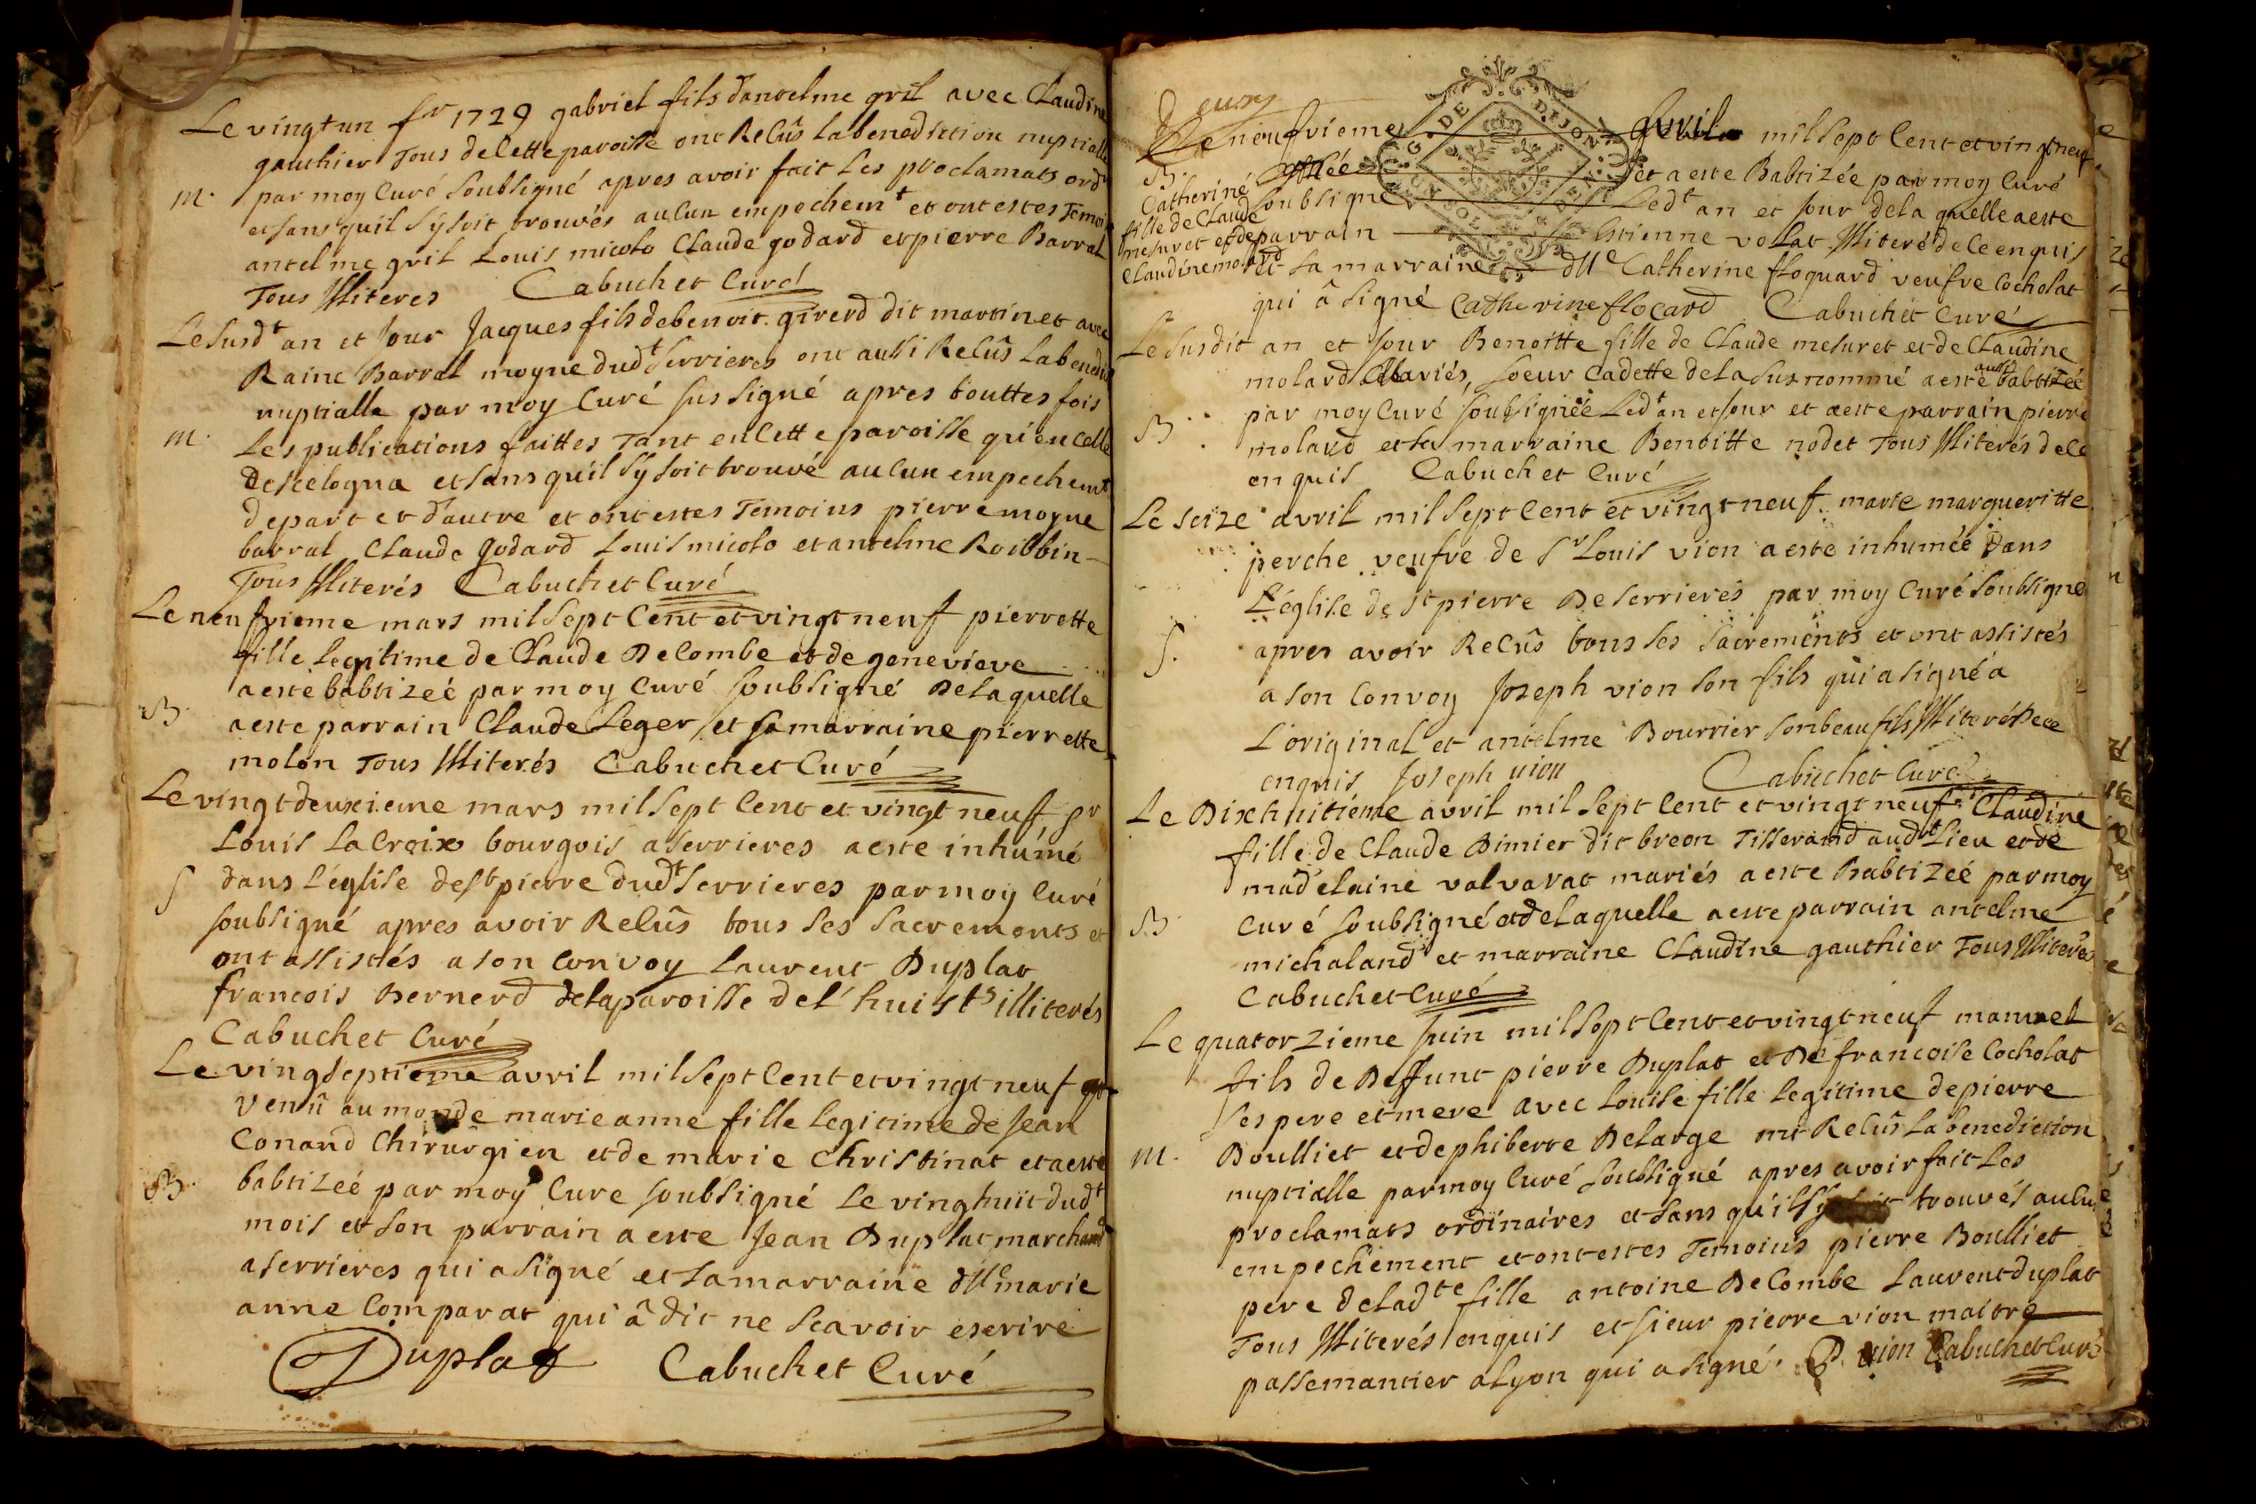 Le vingt un fr 1729 gabriel fils dantelme gril avec Claudine
gauthier Tous de cette paroisse ont Recûs la benediction nuptialle
m. par moy Curé soubsigné apres avoir fait les proclamats ordr
et sans quil s'y soit trouvés aucun empechemt et ont estes Temoins
antelme gril Louis micolo Claude godard et pierre Barral
Tous illiteres Cabuchet Curé
Le susdt an et jour Jacques fils de benoit girerd dit martinet avec
Raine Barral moyne dudt Serrieres ont aussi Recûs la benedion
nuptialle par moy Curé sus signé apres touttes fois
m. Les publications faittes Tant en cette paroisse qu'en celle
descelogna et sans qu'il s'y soit trouvé aucun empechemt
depart et dautre et ont estes Temoins pierre moyne
barral Claude godard Louis micolo et antelme Roibbin
Tous illiterés Cabuchet Curé
Le neufvieme mars mil sept Cent et vingt neuf pierrette
fille legitime de Claude DeCombe et de genevieve
a esté babtizeé par moy Curé soubsigné De laquelle
B. a este parrain Claude Leger et sa marraine pierrette
molon Tous illiterés Cabuchet Curé
Le vingt deuxieme mars mil sept Cent et vingt neuf sr
Louis La Croix bourgois a serrieres a este inhúmé
S dans L'église de st pierre dudt Serrieres par moy Curé
soubsigné apres avoir Recûs tous ses sacrements et
ont assistés a son Convoy Laurent Duplat
francois Bernerd de la paroisse de l'huis ts illiterés
Cabuchet Curé
Le vingseptieme avril mil sept Cent et vingt neuf est
venû au monde marie anne fille legitime de Jean
Conand Chirurgien et de marie Christinat et a este
B. babtizeé par moy Cure soubsigné Le vinghuit dudt
mois et son parrain a este Jean Duplat marchand
a serrieres qui a signé et sa marraine dlle marie
anne Comparat qui â dit ne scavoir escrire
Duplat Cabuchet Curé
Deuxs
GN. DE DIJON
Le neufvieme avril mil sept Cent et vingt neuf
B. est née et a este Babtizée par moy Curé
Catheriné
fille de Claude
mesuret et de
Claudine molard
soubsigné Ledt an et jour de la quelle a este
parrain Estienne vollat illiteré de ce enquis
et sa marraine dlle Catherine floquard veufve Cocholat
qui â signé Catherine flocard Cabuchet Curé
Le susdit an et jour Benoitte fille de Claude mesuret et de Claudine
molard Mariés, soeur Cadette de la susnommé a esté aussi babtizéé
B par moy Curé soubsignéé Ledt an et jour et a este parrain pierre
molard et sa marraine Benoitte nodet Tous illiterés de ce
enquis Cabuchet Curé
Le seize avril mil sept Cent et vingt neuf marie margueritte
perche veufve de Sr Louis vion a este inhumée Dans
L'église de St pierre De serrieres par moy Curé soubsigné
S. apres avoir Recûs tous ses sacrements et ont assistés
a son Convoy Joseph vion son fils qui a signé a
L'original et antelme Bourrier son beau fils illiteré De ce
enquis Joseph vion Cabuchet Curé
Le Dixhuitiéme avril mil sept Cent et vingt neuf Claudine
fille de Claude Dimier dit breon Tisserand audt Lieu et de
madelaine valvarat mariés a este Babtizeé par moy
B Curé soubsigné et de laquelle a este parrain antelme
michaland et marraine Claudine gauthier Tous illiterés
Cabuchet Curé
Le quatorzieme juin mil sept Cent et vingt neuf manuel
fils de Deffunt pierre Duplat et De francoise Cocholat
ses pere et mere avec Louise fille legitime de pierre
m. Boulliet et de phiberte Delarge ont Recûs la benediction
nuptialle par moy Curé soubsigné apres avoir fait Les
proclamats ordinaires et sans qu'il s'y soit trouvés aucun
empechement et ont estes Temoins pierre Boulliet
pere de ladte fille antoine DeCombe Laurent duplat
Tous illiterés enquis et sieur pierre vion maitre
passemantier a Lyon qui a signé. P. vion Cabuchet Curé